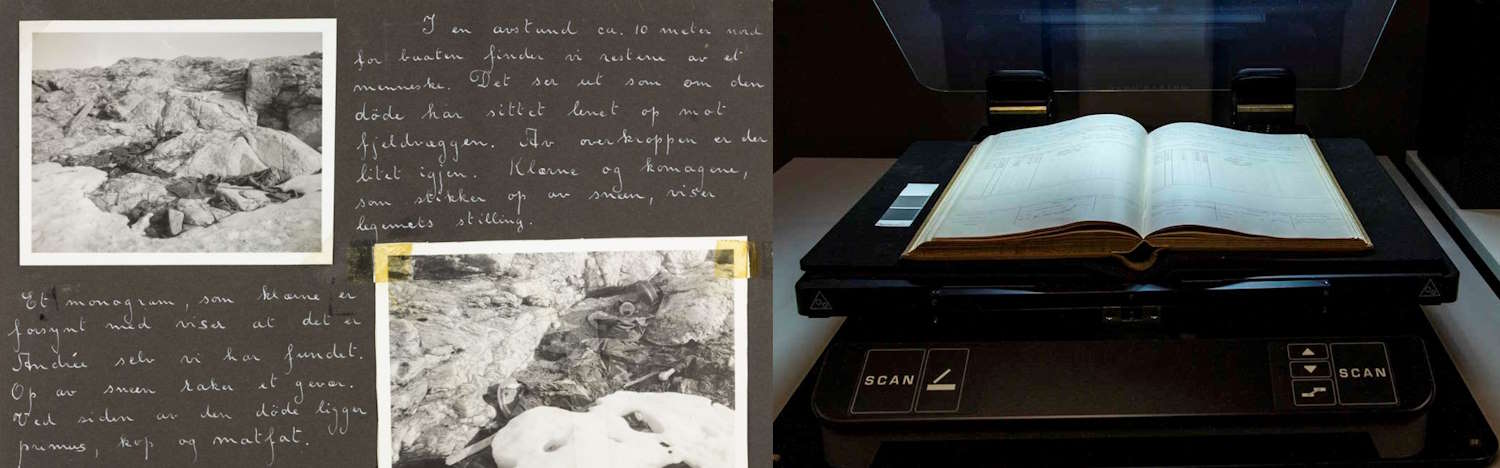 I en avstand ca. 10 meter nord
for baaten finder vi restene av et
menneske. Det ser ut som om den
döde har sittet lenet op mot
fjeldvæggen. Av overkroppen er der
litet igjen. Klærne og komagene,
som stikker op av sneen, viser
legemets stilling.
Et monogram, som klærne er
forsynt med viser at det er
Andrée selv vi har fundet.
Op av sneen raker et gevær.
Ved siden av den döde ligger
primus, kop og matfat.
SCAN
SCAN